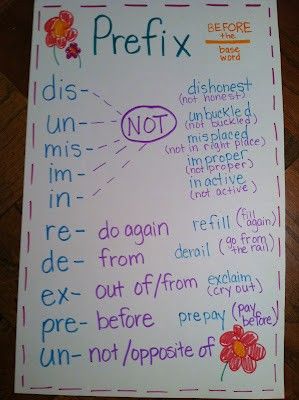 Prefix
BEFORE
the
base
word
dis-
un-
mis-
im-
in-
NOT
dishonest
(not honest)
unbuckled
(not buckled)
misplaced
(not in right place)
improper
(not proper)
inactive
(not active)
re- do again refill (fill again)
de- from derail (go from the rail)
ex- out of/from exclaim (cry out)
pre- before prepay (pay before)
un- not/opposite of